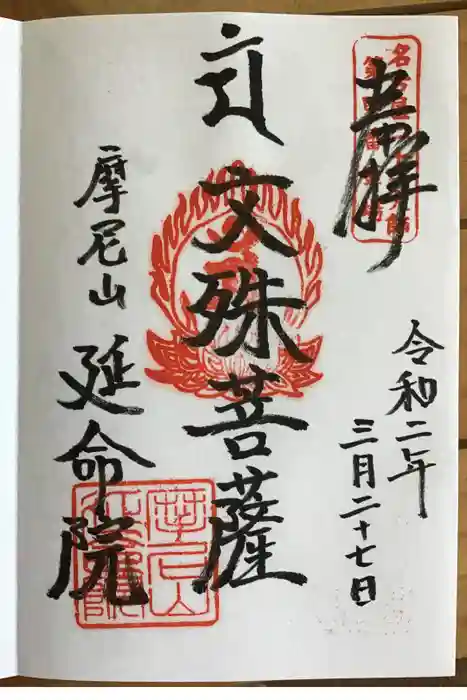 奉拝
令和二年
三月二十七日
文殊菩薩
摩尼山
延命院